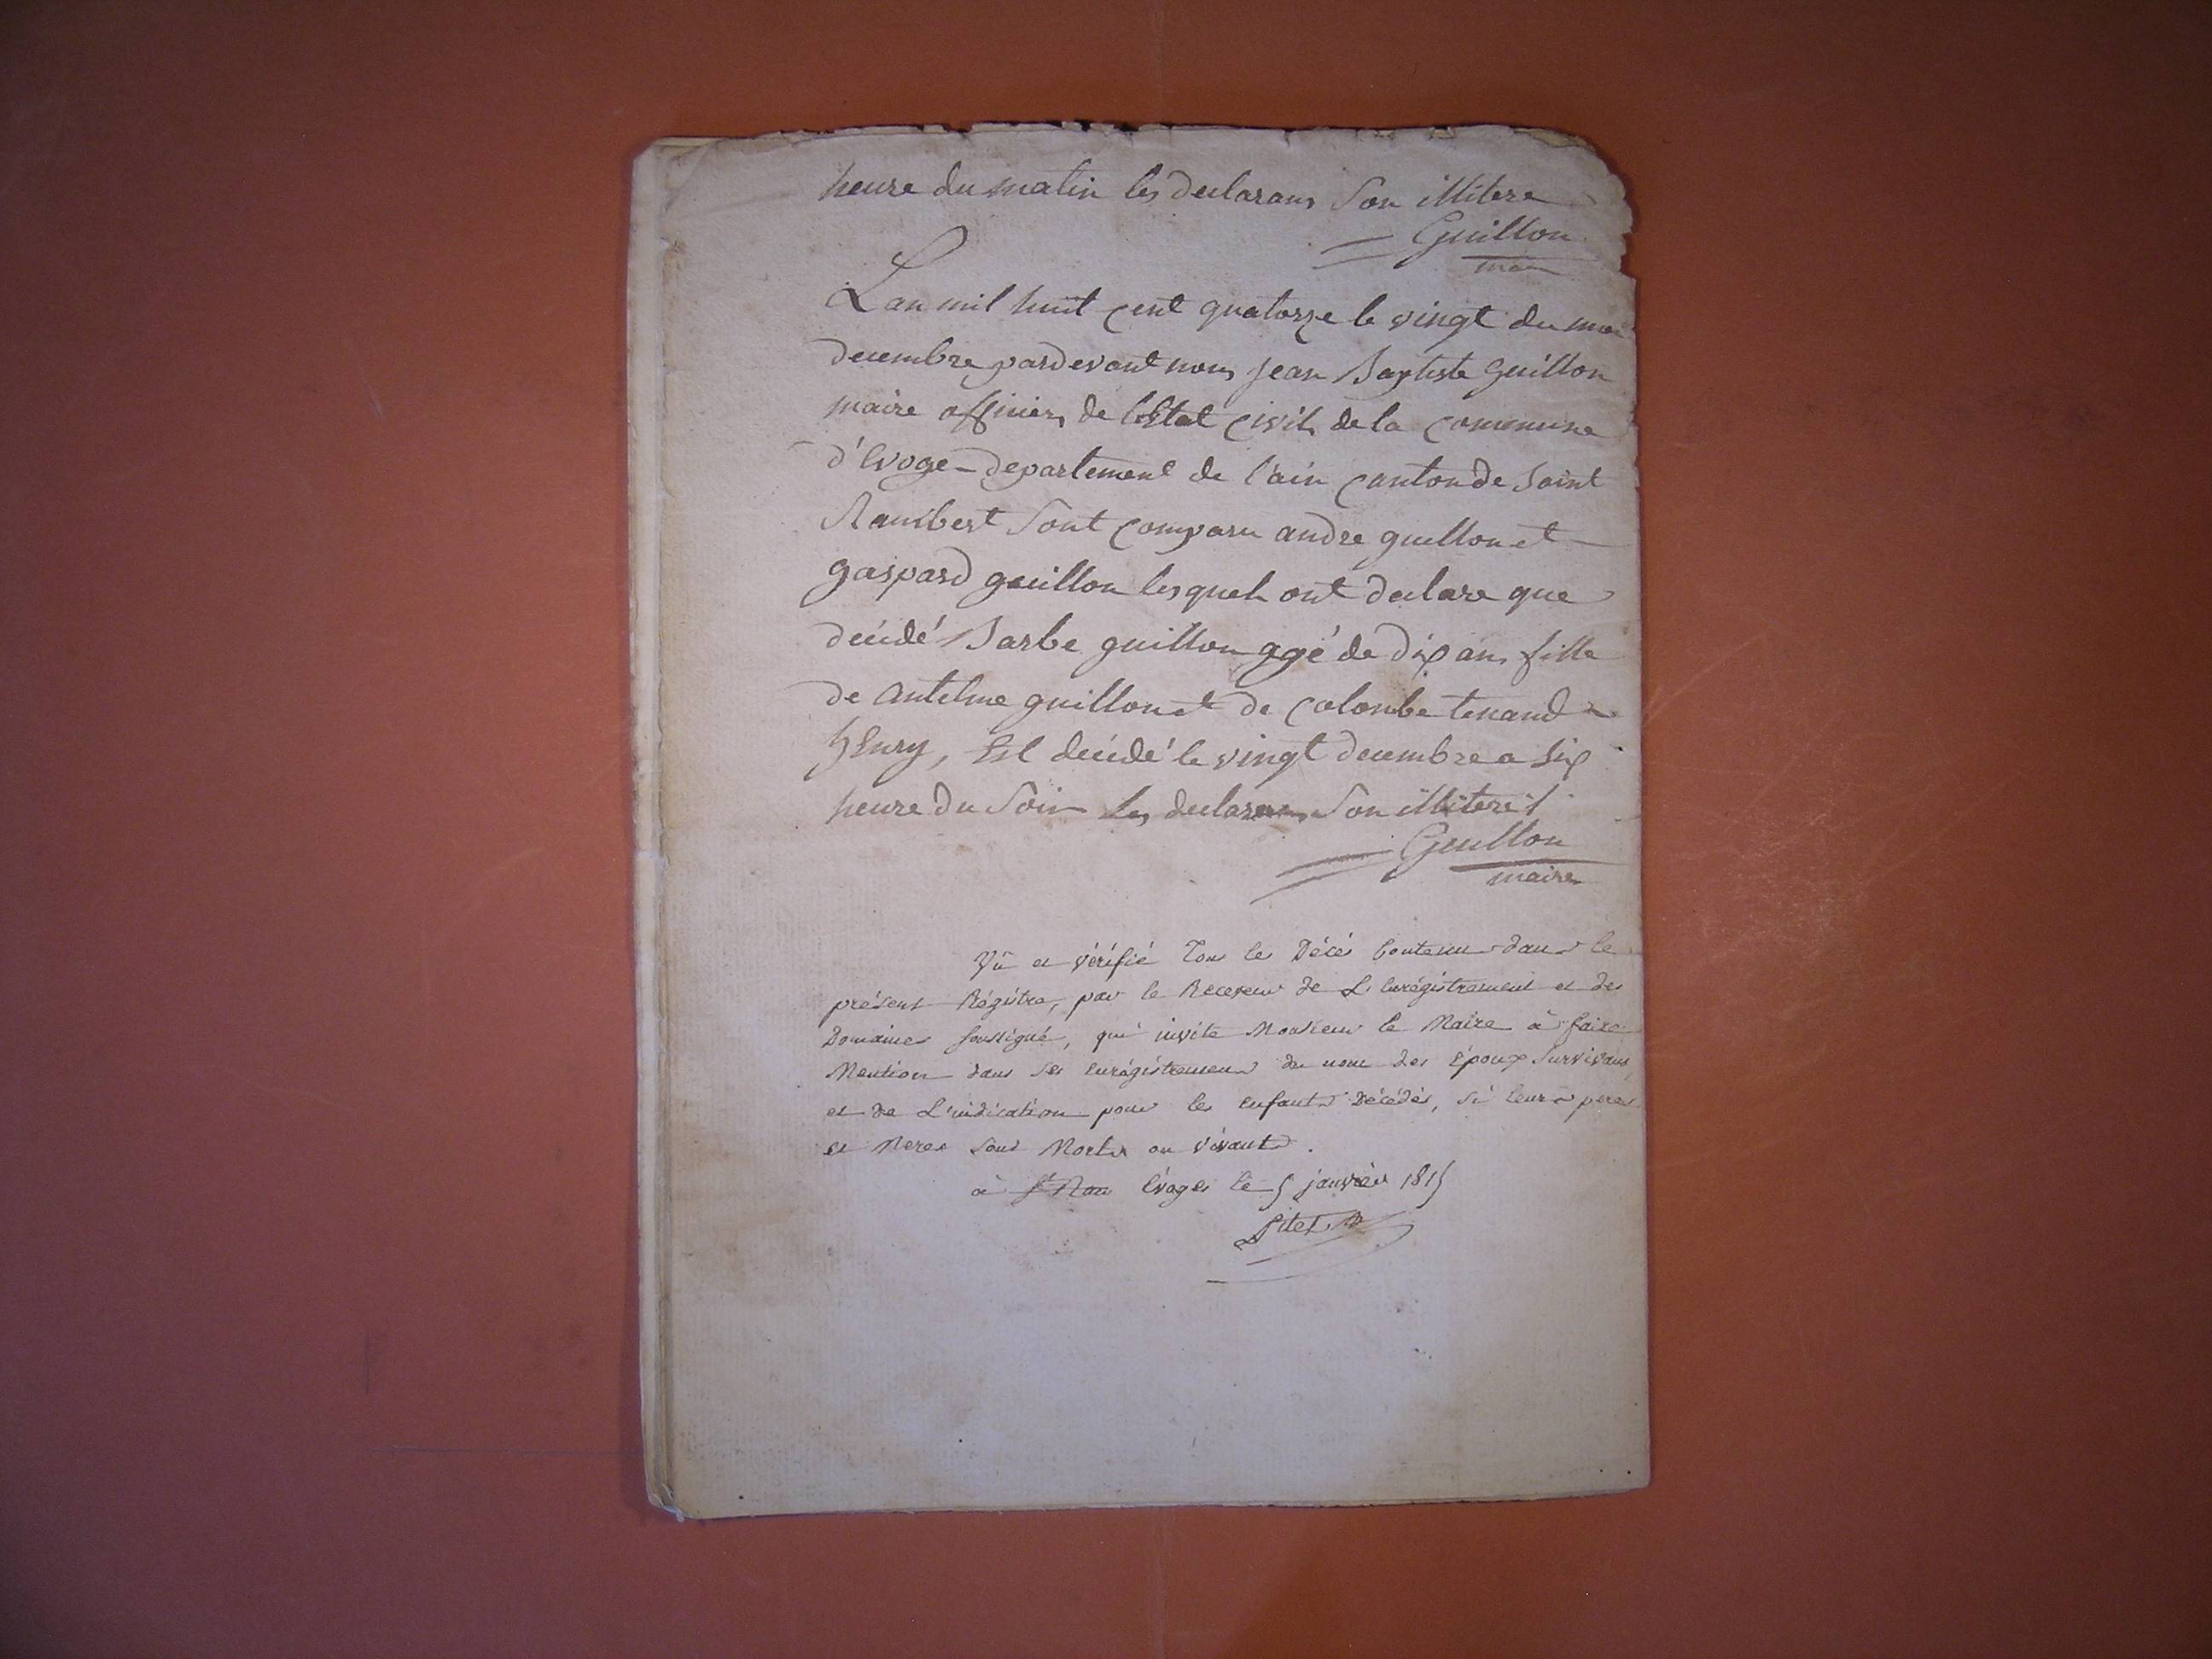 heure du matin les declarans son illitere
Guillon
maire
Lan mil huit cent quatorze le vingt du moi
decembre pardevant nous jean Baptiste guillon
maire officier de lEstat civil de la commune
d'Evoge departement de l'ain canton de saint
Rambert sont comparu andre guillon et
gaspard guillon lesquels ont declare que
décédé Barbe guillon agé de dix ans fille
de antelme guillon et de colombe tenand
henry, Est décédé le vingt decembre a six
heure du soir les declarans son illiteré
Guillon
maire
Vû et vérifié tous les Décés contenus dans le
présent Régistre, par le Receveur de L'enrégistrement et des
Domaines soussigné, qui invite Monsieur le Maire à faire
Mention dans ses enrégistremens du nom des époux survivans,
et de L'indication pour les enfants Décédés, si leurs peres
et Meres sont Morts ou vivants.
à Evoges le 5 janvier 1815